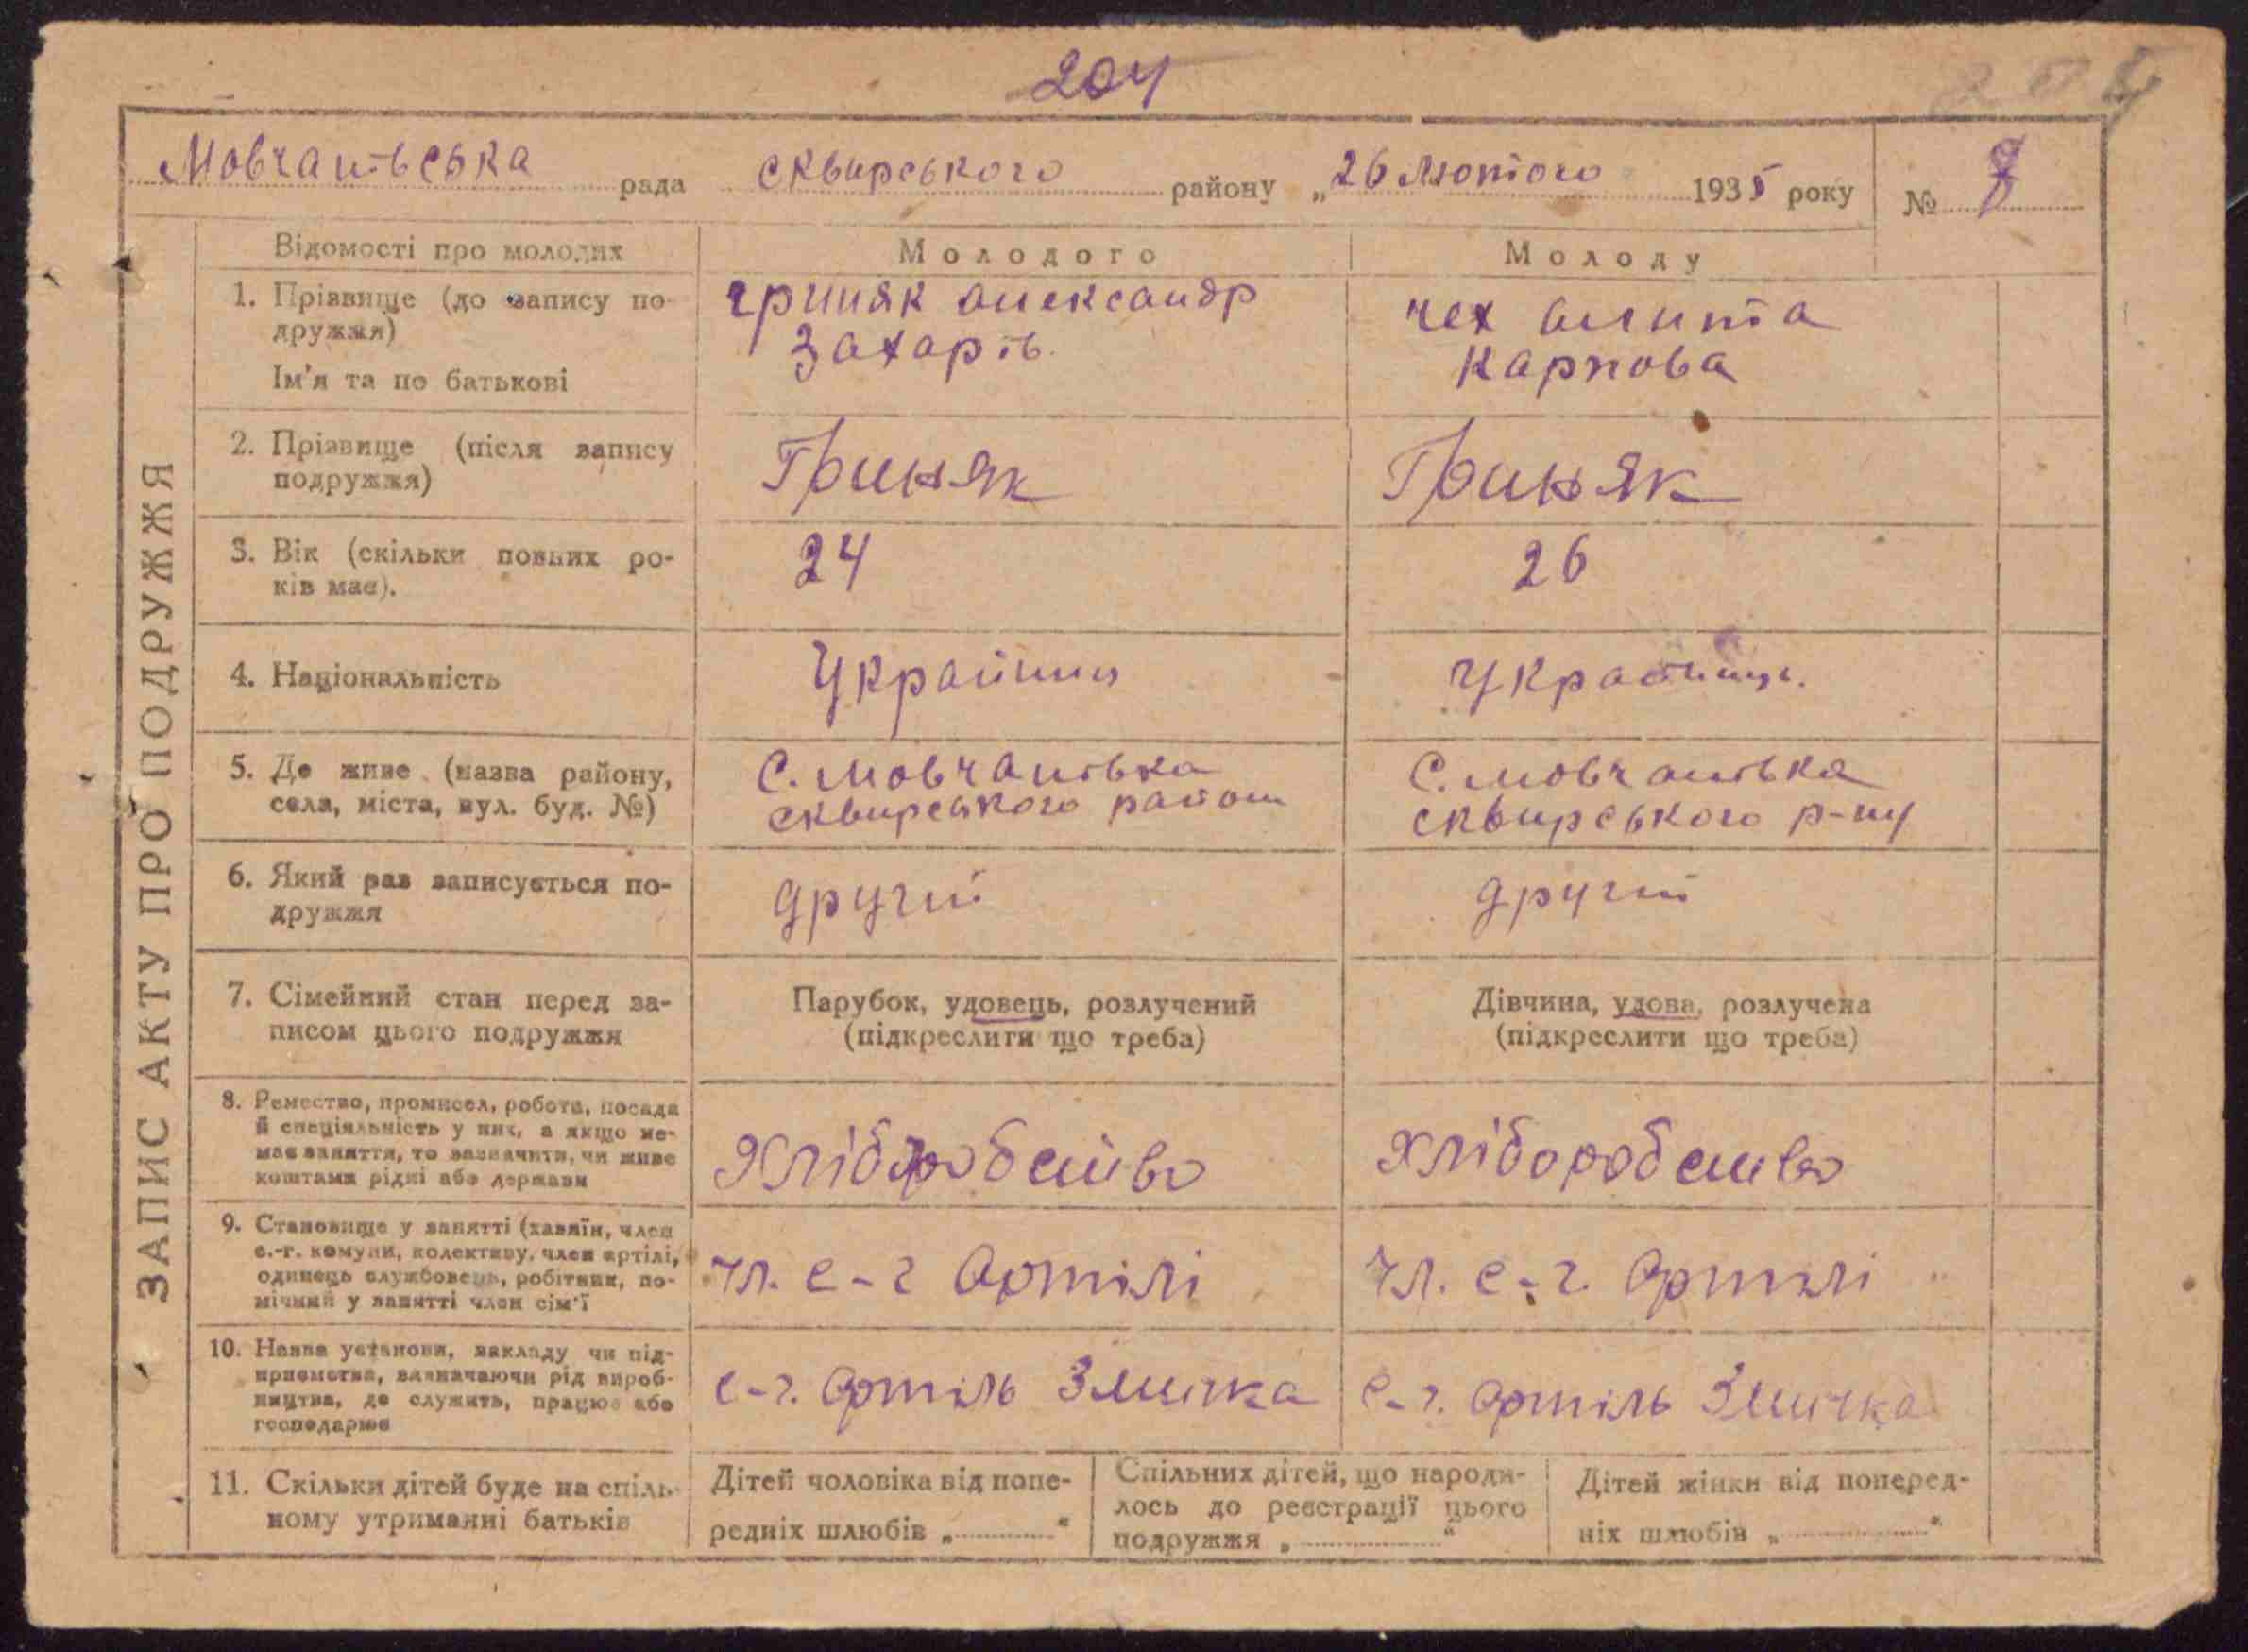 204
204
Мовчанівська рада сквирського району „26 Лютого 1935 року №
Відомості про молодих Молодого Молоду
1. Прізвище (до запису по-
дружжя)
Ім'я та по батькові
гриняк александр
Захарів.
чех
Карпова
2. Прізвище (після запису
подружжя)
Гриняк Гриняк
3. Вік (скільки повних ро-
ків має).
24 26
4. Національність
Українц
5. Де живе (назва району,
села, міста, вул. буд. №)
С. мовчанівка
сквирського район
С. мовчанівка
сквирського р-ну
6. Який раз записується по-
дружжя
другий другий
7. Сімейний стан перед за-
писом цього подружжя
Парубок, удовець, розлучений
(підкреслити що треба)
Дівчина, удова, розлучена
(підкреслити що треба)
8. Ремество, промисел, робота, посада
й спеціяльність у них, а якщо не-
має заняття, то зазначити, чи живе
коштами рідні або держави
Хліборобство Хліборобство
9. Становище у занятті (хазяїн, член
с.-г. комуни, колективу, член артілі,
одинець службовець, робітник, по-
мічний у занятті член сім'ї
чл. с-г Артілі чл. с-г. Артілі
10. Назва установи, закладу чи під-
приємства, зазначаючи рід вироб-
ництва, де служить, працює або
господарює
с-г. Артіль Змичка с-г. Артіль Змичка
11. Скільки дітей буде на спіль-
ному утриманні батьків
Дітей чоловіка від попе-
редніх шлюбів „ “
Спільних дітей, що народи-
лось до реєстрації цього
подружжя „ “
Дітей жінки від поперед-
ніх шлюбів „ “
ЗАПИС АКТУ ПРО ПОДРУЖЖЯ